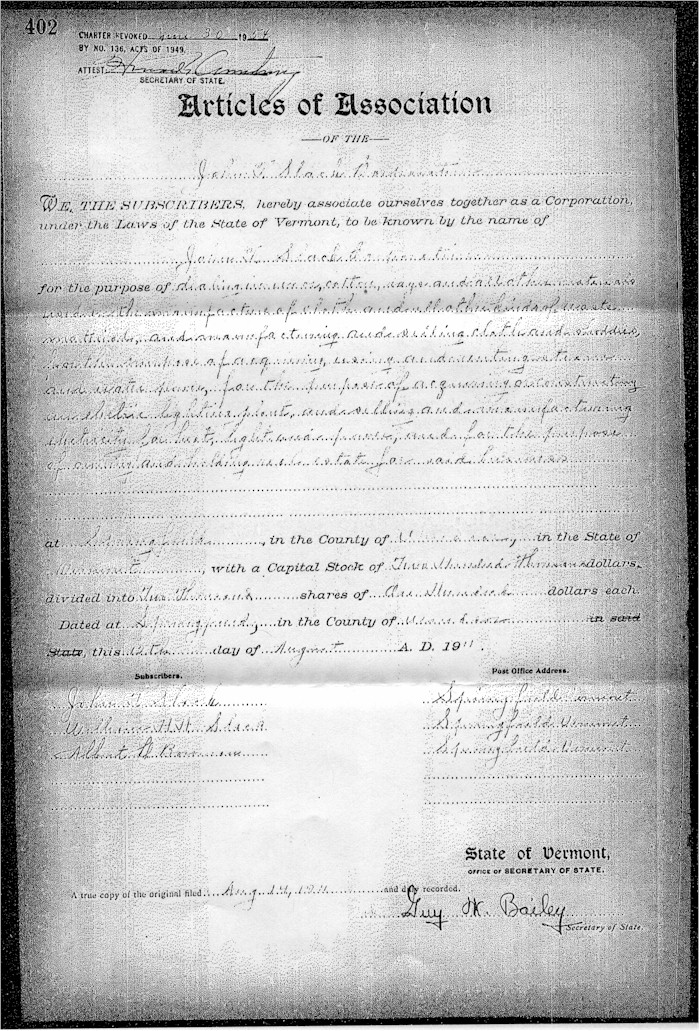 402
CHARTER REVOKED June 30 19
BY NO. 136, ACTS OF 1949.
ATTEST:
SECRETARY OF STATE.
Articles of Association
OF THE
John T. Slack Corporation
WE, THE SUBSCRIBERS, hereby associate ourselves together as a Corporation,
under the Laws of the State of Vermont, to be known by the name of
John T. Slack Corporation
for the purpose of dealing in wool, cotton, rags and all other materials
used in the manufacture of cloth and all other kinds of waste
material, and manufacturing and selling cloth and shoddies,
for the purpose of acquiring, using and renting steam
and water power, for the purpose of acquiring or constructing
an electric lighting plant, and selling and manufacturing
electricity for heat, light and power, and for the purpose
of owning and holding real estate for said business
at Springfield, in the County of Windsor, in the State of
Vermont, with a Capital Stock of Two Hundred Thousand dollars,
divided into Two Thousand shares of One Hundred dollars each.
Dated at Springfield, in the County of Windsor in said
State, this 12th day of August A. D. 1911.
Subscribers. Post Office Address.
John T. Slack Springfield Vermont
William H. H. Slack Springfield Vermont
Albert Springfield Vermont
State of Vermont,
OFFICE OF SECRETARY OF STATE.
A true copy of the original filed Aug 14, 1911 and duly recorded.
Guy W. Bailey
Secretary of State.